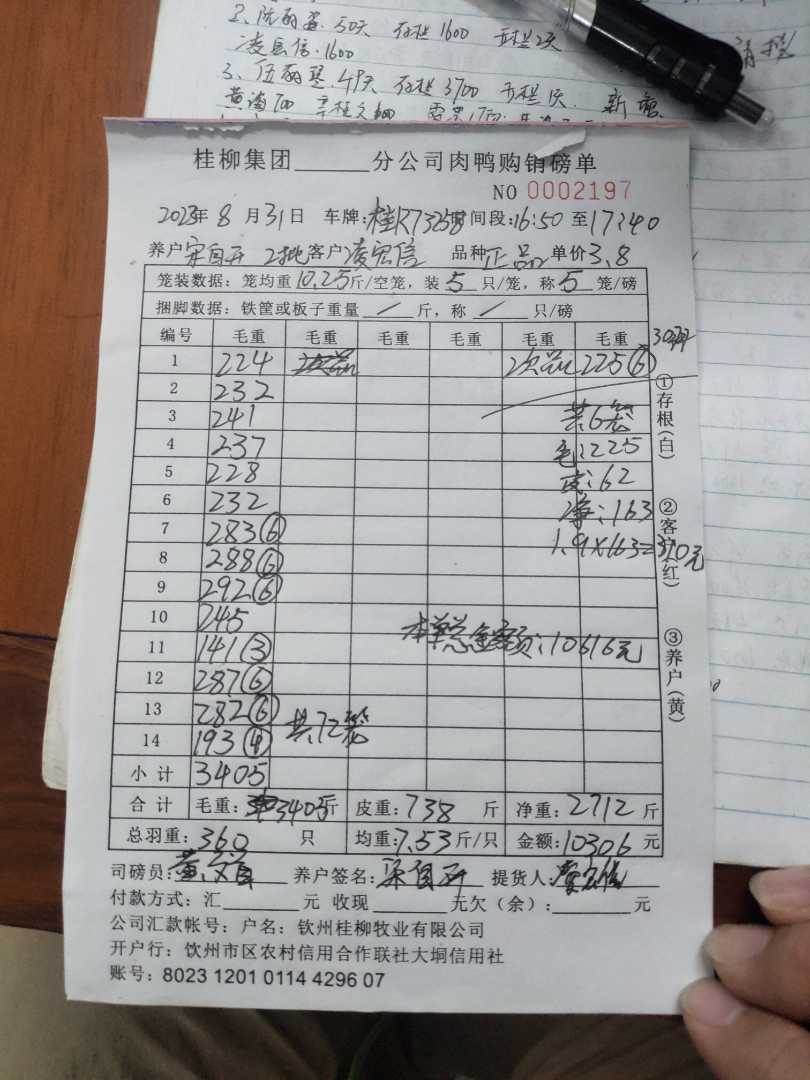 凌宏信.1600
桂柳集团______分公司肉鸭购销磅单
NO 0002197
2023年8月31日 车牌:桂K73258时间段:16:50至17:40
养户宋自开 2批客户凌宏信 品种正品 单价3.8
笼装数据: 笼均重10.25斤/空笼, 装5只/笼, 称5笼/磅
捆脚数据: 铁筐或板子重量/斤, 称/只/磅
编号 毛重 毛重 毛重 毛重 毛重 毛重
1 224 次品 次品 225(6) 30只
2 232
3 241 共6笼
4 237 毛:225
5 228 皮:62
6 232 净:163
7 283(6) 1.9×163=310元
8 288(6)
9 292(6)
10 245
11 141(3) 本单总金额:10616元
12 287(6)
13 282(6) 共72笼
14 193(4)
小计 3405
合计 毛重:3405斤 皮重:738斤 净重:2712斤
总羽重:360只 均重:7.53斤/只 金额:10306元
司磅员: 养户签名:宋自开 提货人:
付款方式: 汇______元 收现______元欠(余):______元
公司汇款帐号: 户名: 钦州桂柳牧业有限公司
开户行: 钦州市区农村信用合作联社大垌信用社
账号: 8023 1201 0114 4296 07
①存根(白)
②客户(红)
③养户(黄)